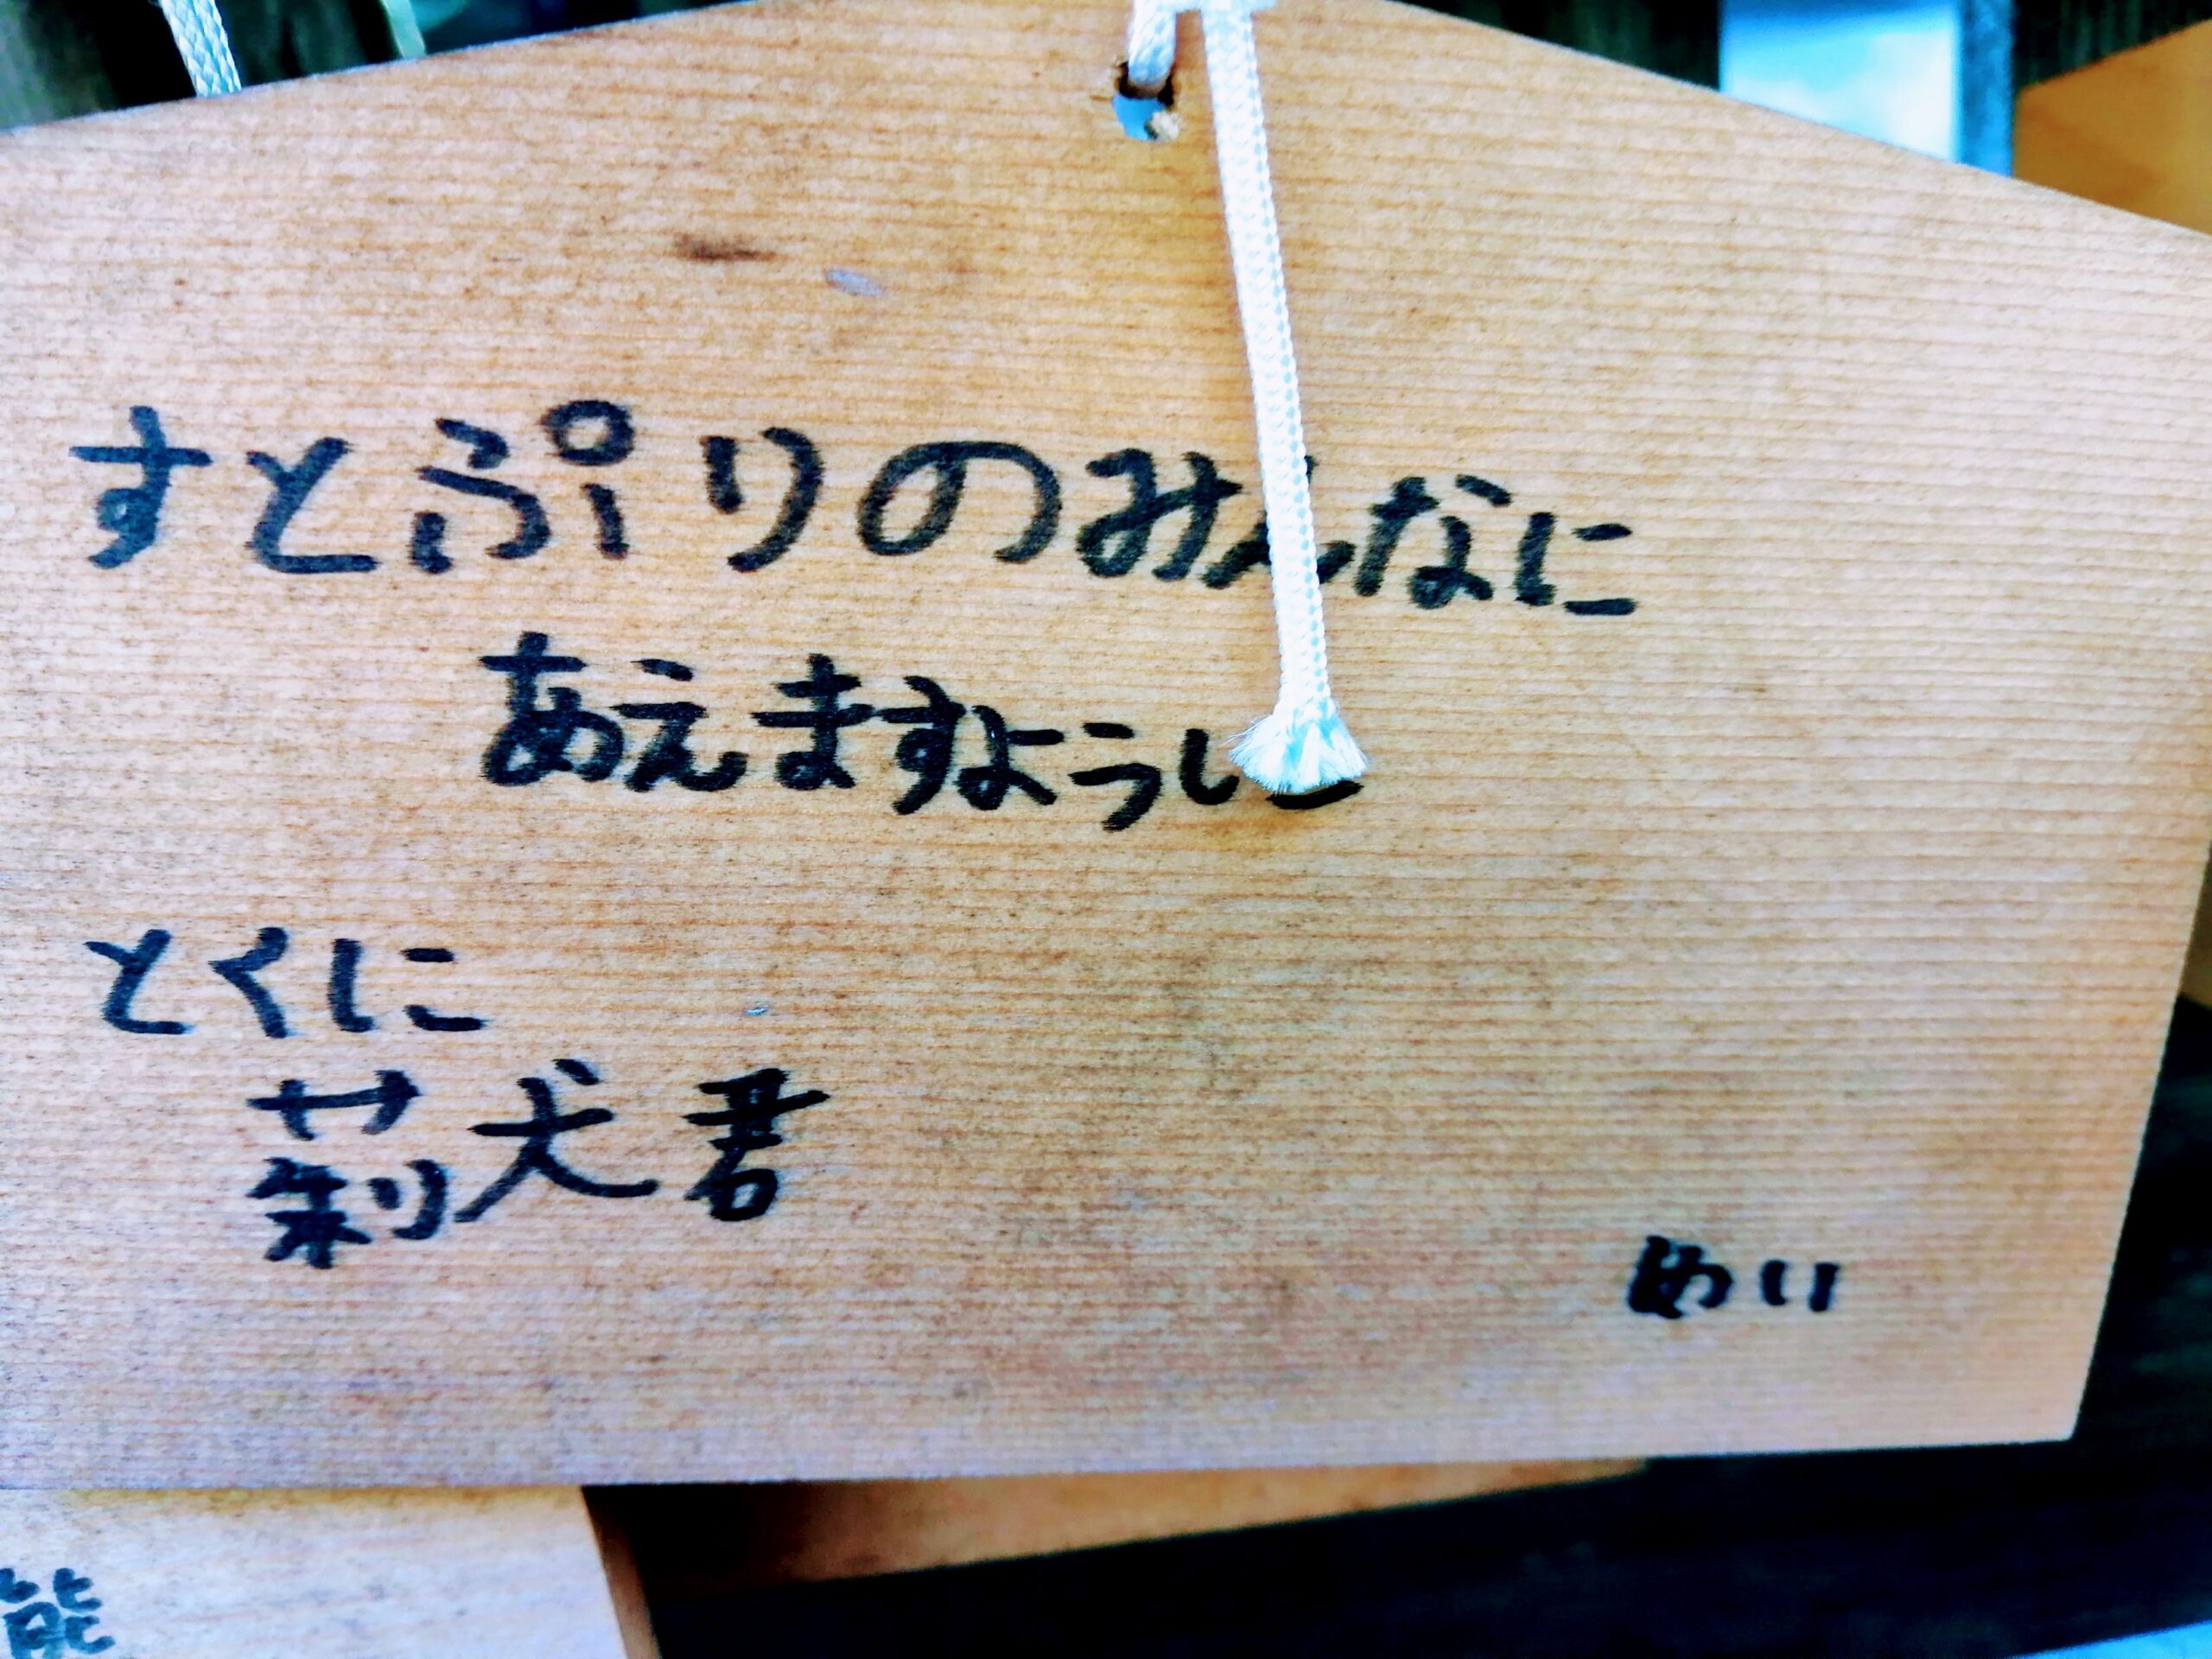 すとぷりのみんなに
あえますように
とくに
莉犬君
めい
能